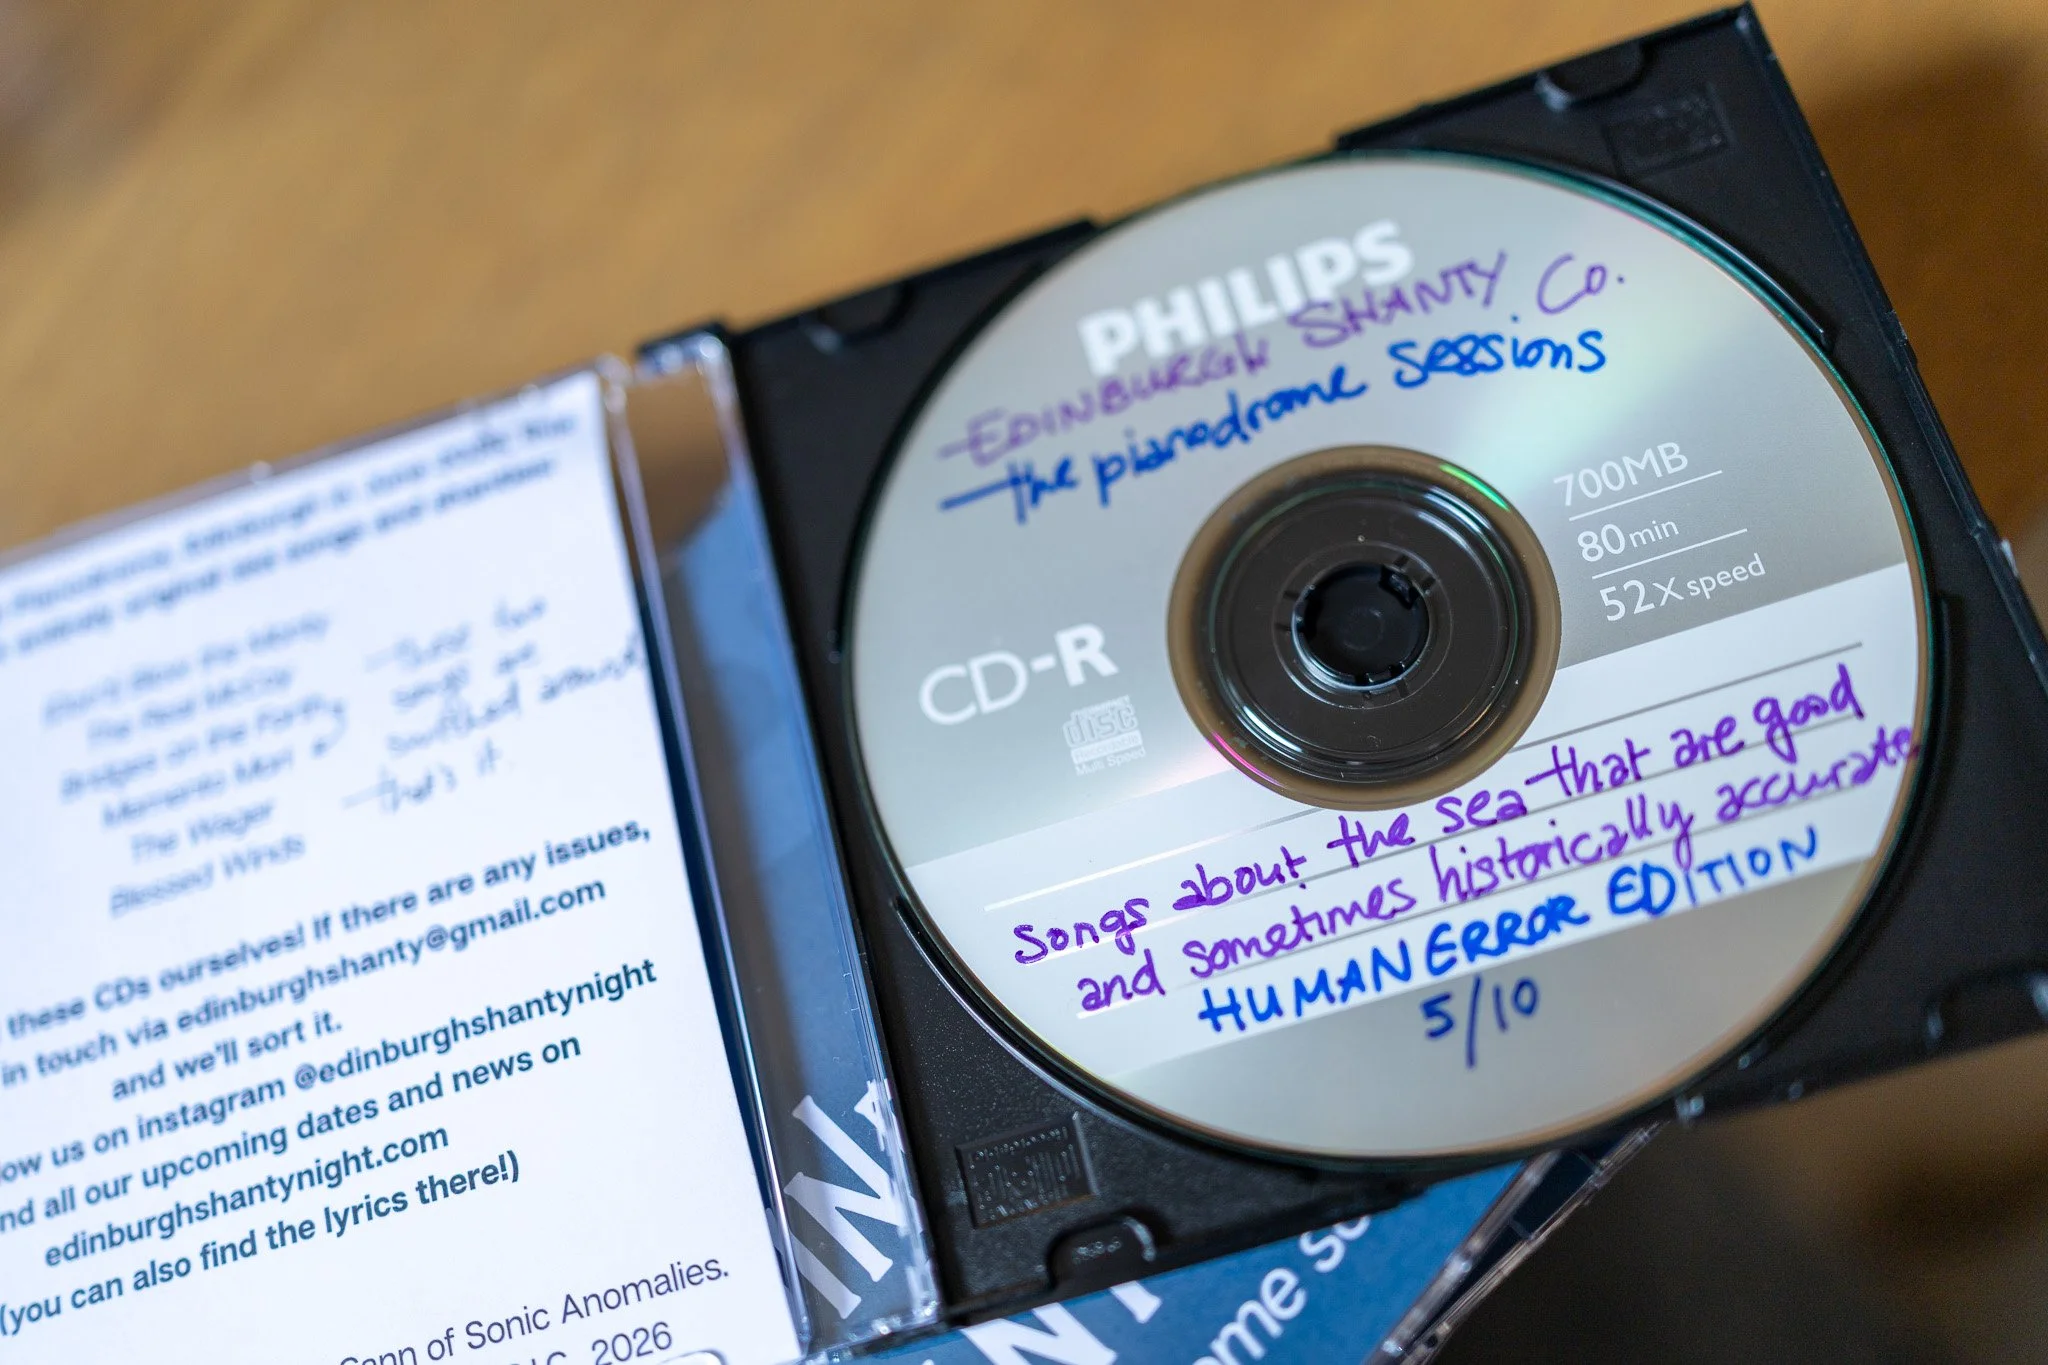 Pianodrome, Edinburgh
entirely original sea songs and shanties
Don't Blow the Monty
The Real McCoy
Bridges on the Forth
Memento Mori
The Wager
Blessed Winds
These two
songs are
switched around
that's it.
these CDs ourselves! If there are any issues,
in touch via edinburghshanty@gmail.com
and we'll sort it.
ow us on instagram @edinburghshantynight
nd all our upcoming dates and news on
edinburghshantynight.com
(you can also find the lyrics there!)
of Sonic Anomalies.
2026
PHILIPS
EDINBURGH SHANTY Co.
the pianodrome sessions
700MB
80 min
52X speed
CD-R
COMPACT
disc
Recordable
Multi Speed
Songs about the sea that are good
and sometimes historically accurate
HUMAN ERROR EDITION
5/10
ome